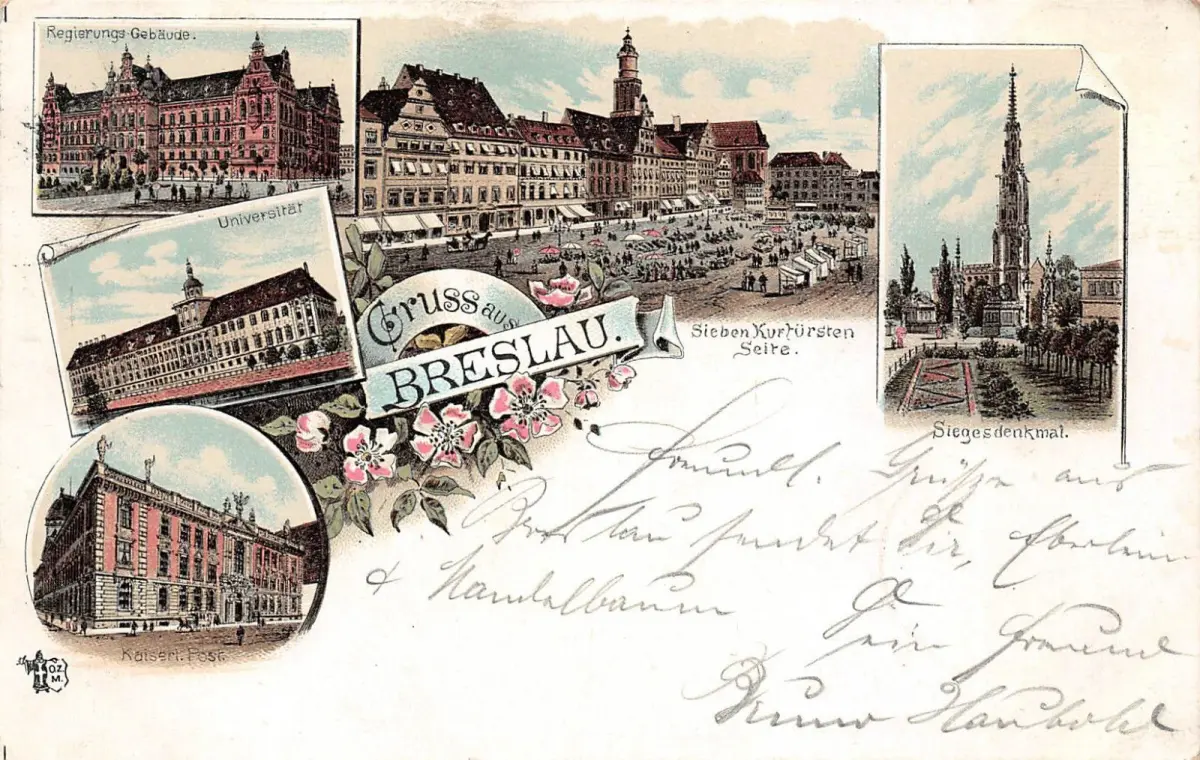 Regierungs-Gebäude.
Universität
Gruss aus
BRESLAU.
Sieben Kurfürsten
Seite.
Siegesdenkmal.
Kaiserl. Post.
O.Z.
M.
Freundl. Grüße aus
Breslau sendet Dir, Eberlein
& Mandelbaum
Dein Freund
Bruno